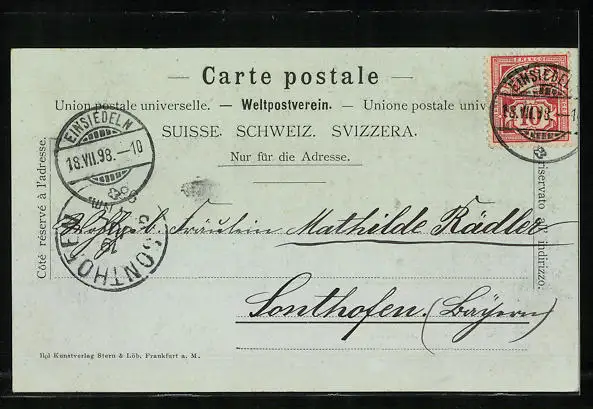 — Carte postale —
Union postale universelle. — Weltpostverein. — Unione postale univ
SUISSE. SCHWEIZ. SVIZZERA.
Nur für die Adresse.
Côté réservé à l'adresse.
riservato all' indirizzo.
FRANCO
10
EINSIEDELN
18.VII.98.–10
EINSIEDELN
18.VII.98.–10
SONTHOFEN
19
Wohlgeb. Fräulein Mathilde Rädler
Sonthofen. (Bayern)
Kunstverlag Stern & Löb, Frankfurt a. M.